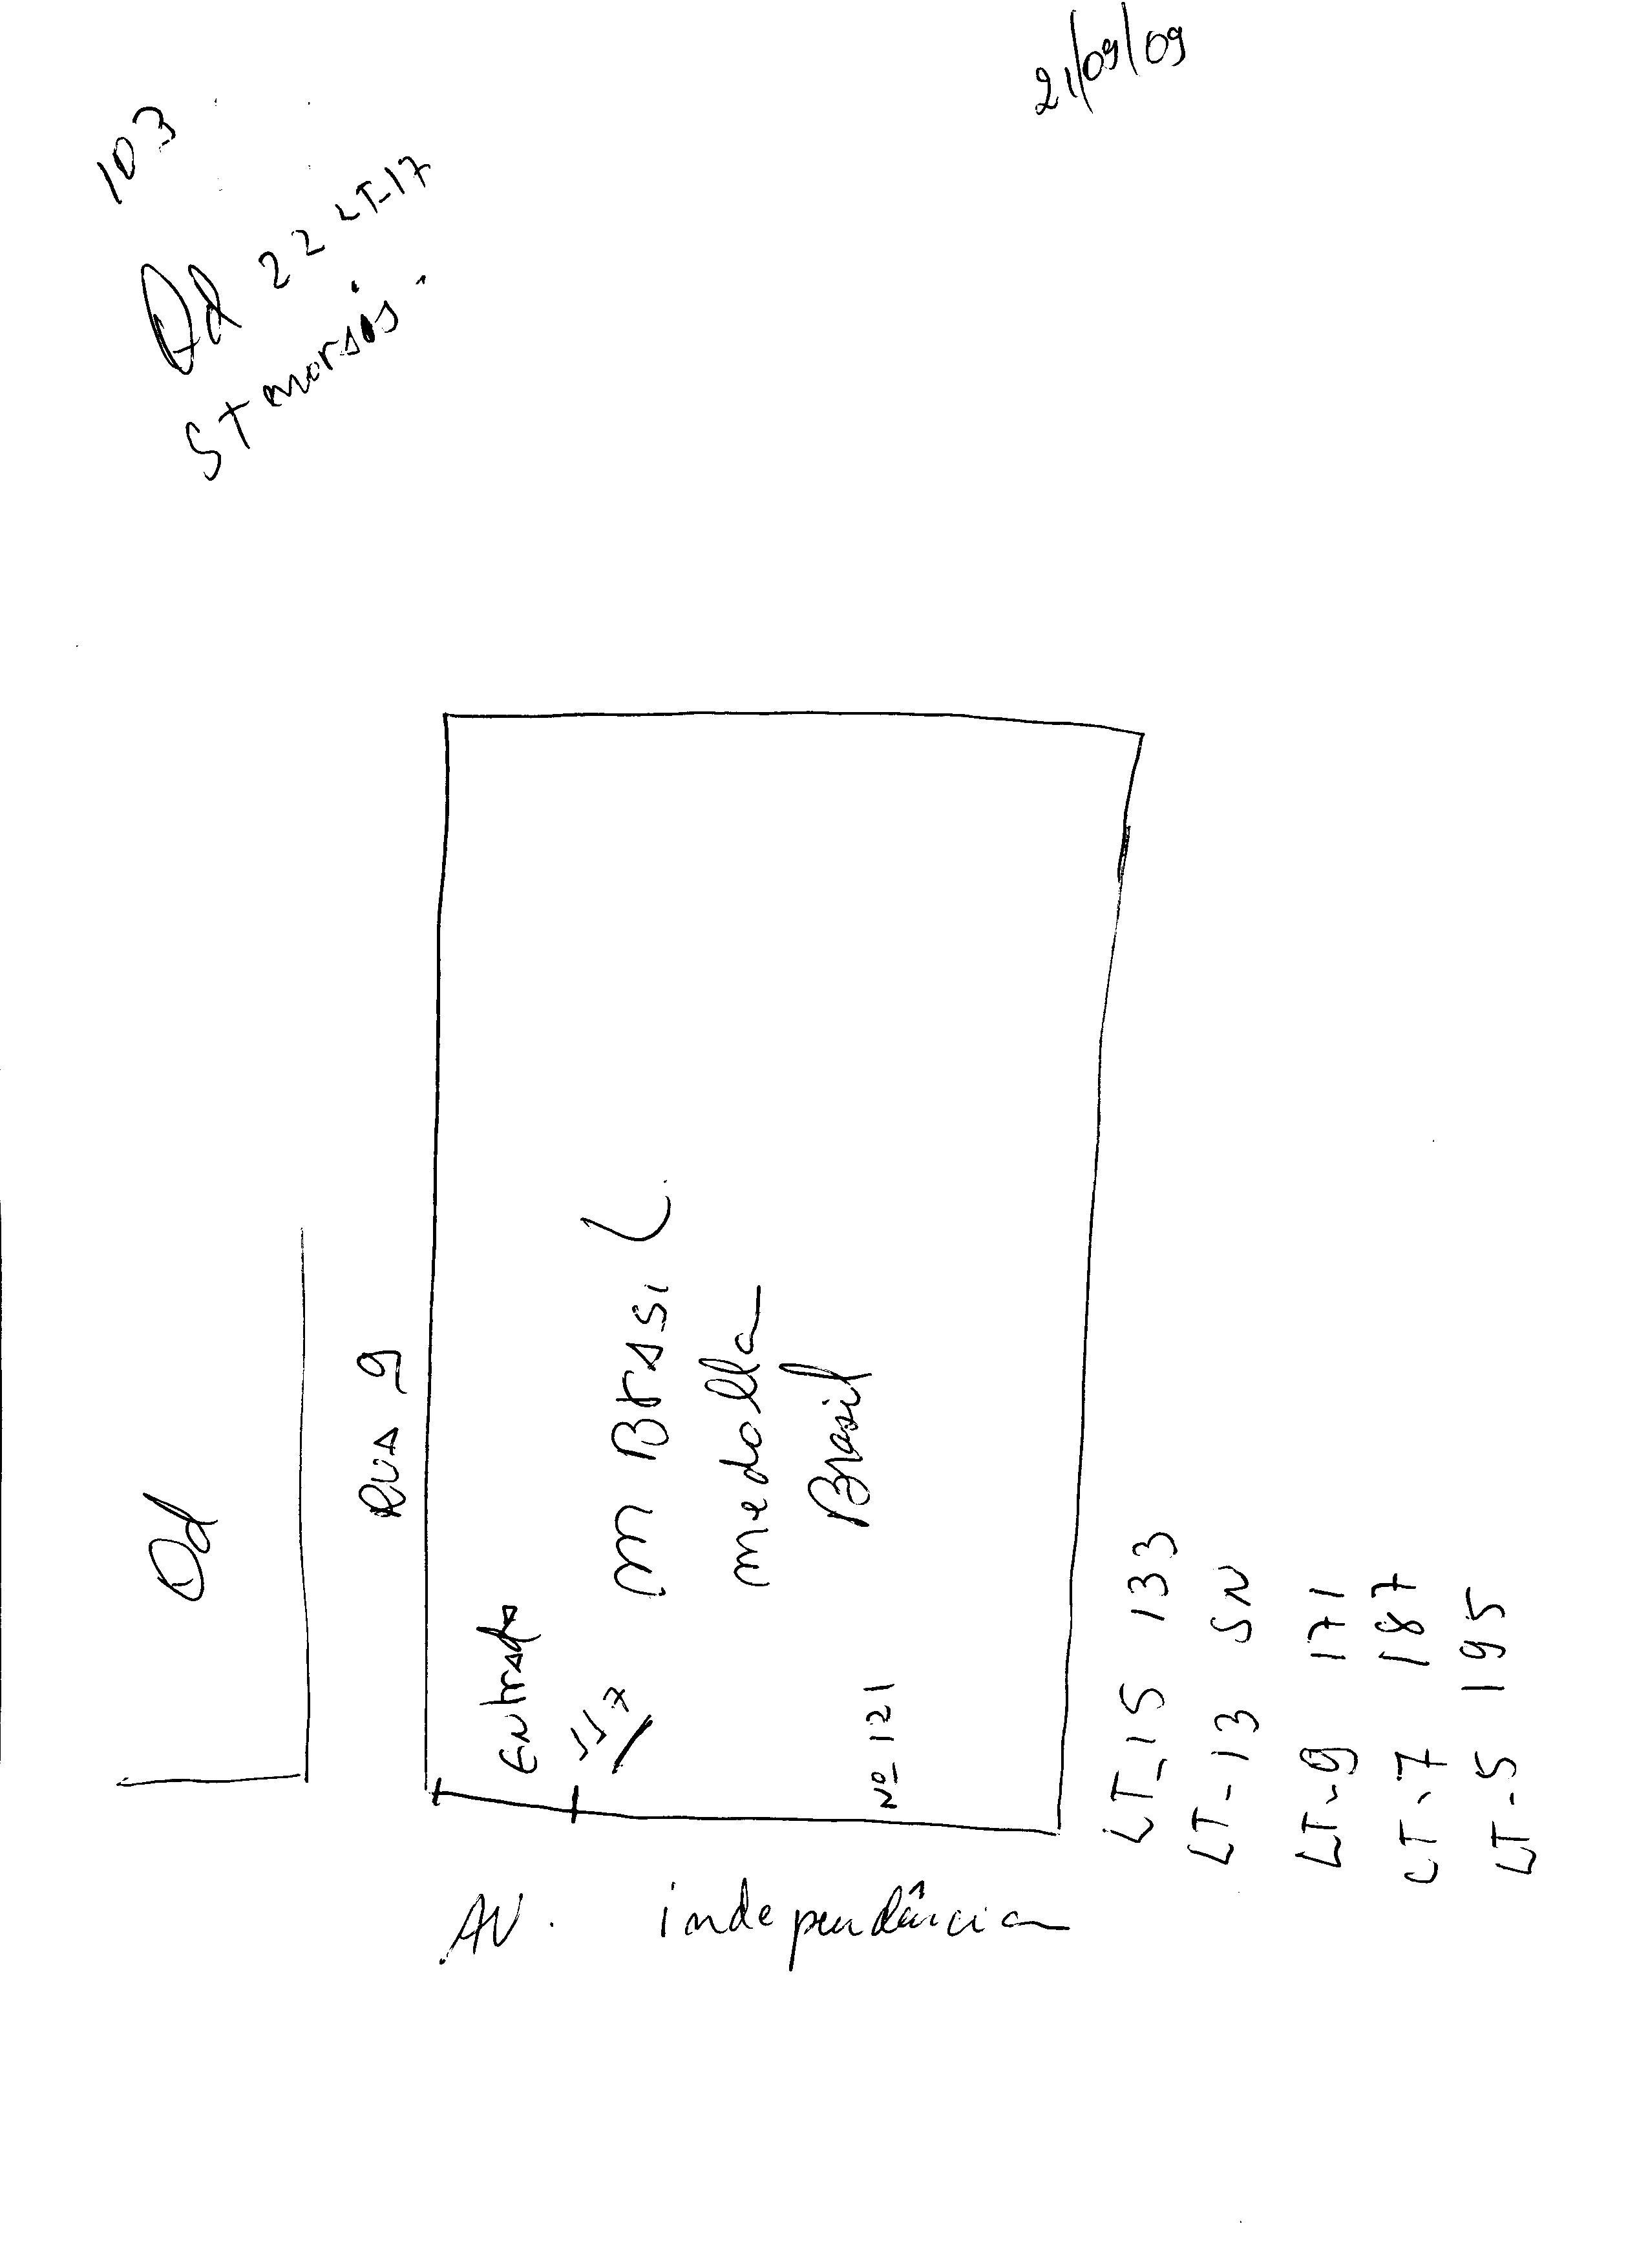 21/09/09
103
Qd 22 LT-17
St morais
Qd
Rua 9
Entrada
117
M Brasil
medalha
Brasil
Nº 121
AV. independência
LT-15 133
LT-13 SN
LT-9 171
LT-7 187
LT-5 195